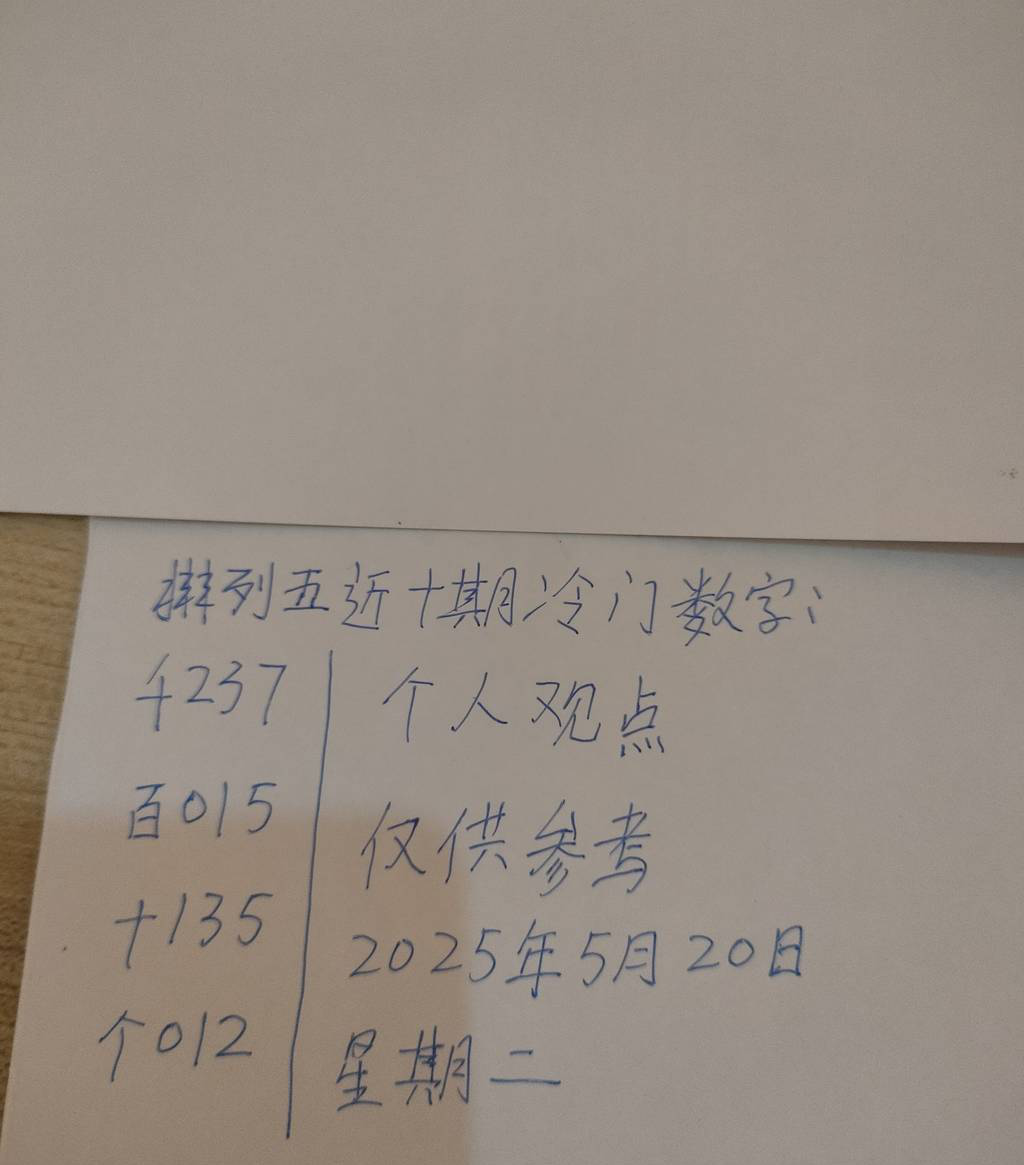 排列五近十期冷门数字：
千237
百015
十135
个012
个人观点
仅供参考
2025年5月20日
星期二